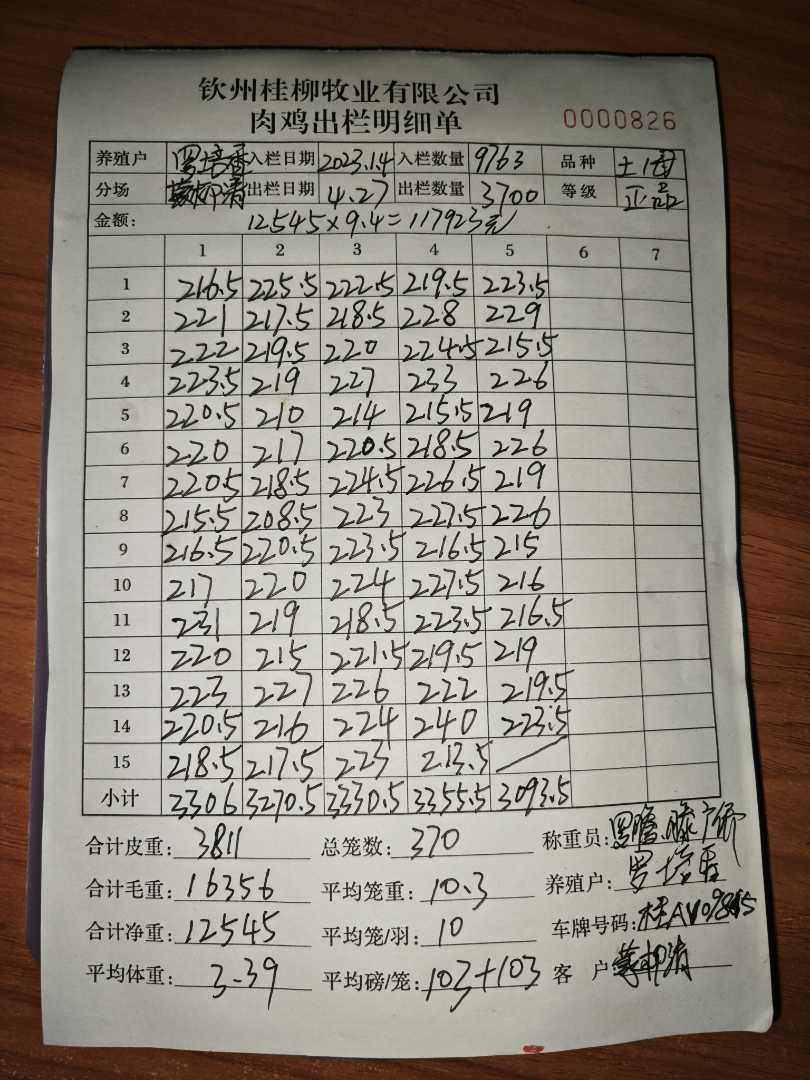 钦州桂柳牧业有限公司
肉鸡出栏明细单 0000826
养殖户 罗培香 入栏日期 2023.1.4 入栏数量 9763 品种 土
分场 出栏日期 4.27 出栏数量 3700 等级 正品
金额: 12545×9.4=117923元
1 2 3 4 5 6 7
1 216.5 225.5 222.5 219.5 223.5
2 221 217.5 218.5 228 229
3 222 219.5 220 224.5 215.5
4 223.5 219 227 233 226
5 220.5 210 214 215.5 219
6 220 217 220.5 218.5 226
7 220.5 218.5 224.5 226.5 219
8 215.5 208.5 223 227.5 226
9 216.5 220.5 223.5 216.5 215
10 217 220 224 227.5 216
11 231 219 218.5 223.5 216.5
12 220 215 221.5 219.5 219
13 223 227 226 222 219.5
14 220.5 216 224 240 223.5
15 218.5 217.5 223 213.5
小计 3306 3270.5 3330.5 3355.5 3093.5
合计皮重: 3811 总笼数: 370 称重员:
合计毛重: 16356 平均笼重: 10.3 养殖户: 罗培香
合计净重: 12545 平均笼/羽: 10 车牌号码:
平均体重: 3.39 平均磅/笼: 103+103 客 户